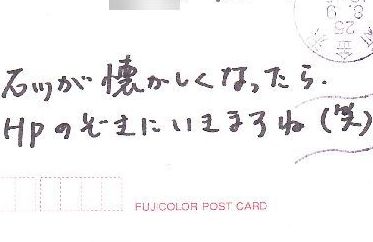 石川が懐かしくなったら、
HPのぞきにいきますね(笑)
FUJICOLOR POST CARD